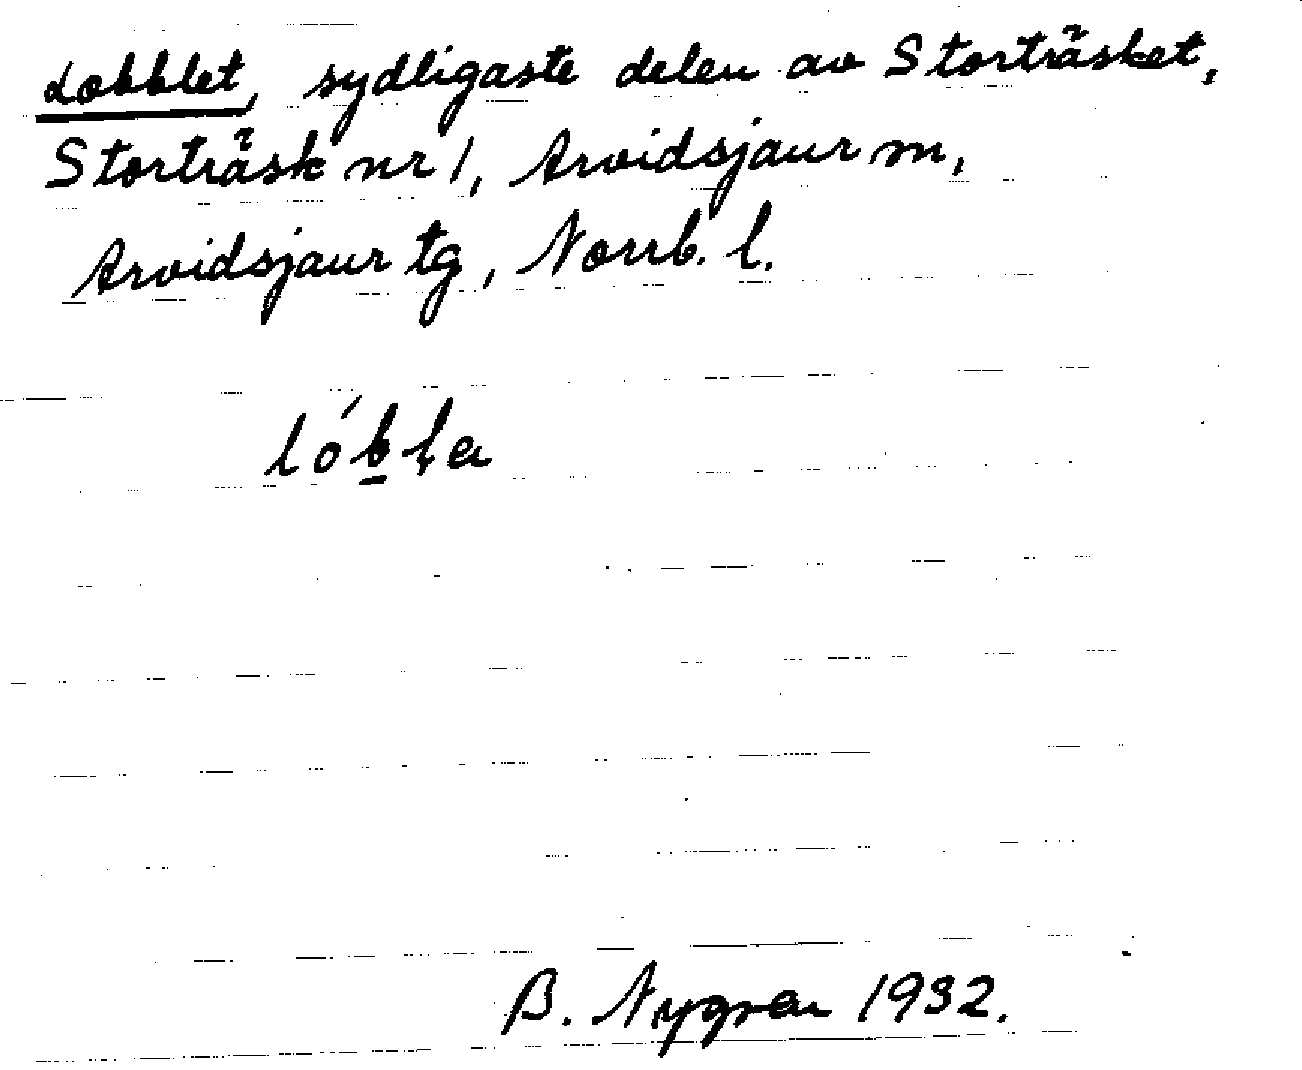 Lobblet, sydligaste delen av Storträsket,
Storträsk nr 1, Arvidsjaur sn,
Arvidsjaur tg, Norrb. l.
lóbla
B. Nygren 1932.